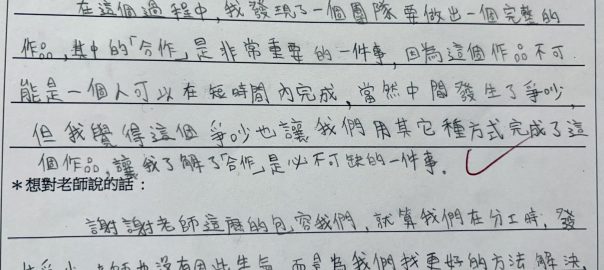 在這個過程中,我發現了一個團隊要做出一個完整的
作品,其中的「合作」是非常重要的一件事,因為這個作品不可
能是一個人可以在短時間內完成,當然中間發生了爭吵,
但我覺得這個爭吵也讓我們用其它種方式完成了這
個作品,讓我了解了「合作」是必不可缺的一件事。
*想對老師說的話:
謝謝老師這麼的包容我們,就算我們在分工時,發
老師也沒有因此生氣,而是為我們找更好的方法解決,